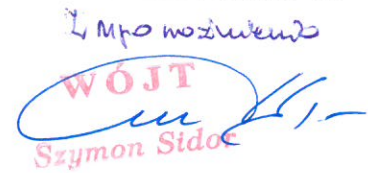 Z upoważnienia
WÓJT
Szymon Sidor